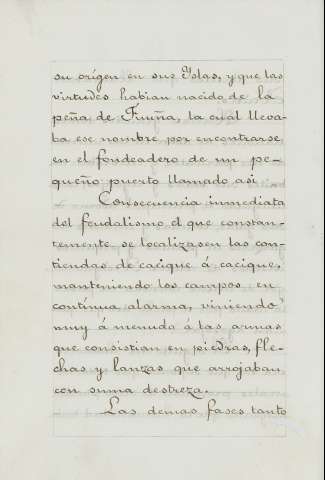 su orígen en sus Yslas, y que las
virtudes habian nacido de la
peña de Fuuña, la cual lleva-
ba ese nombre por encontrarse
en el fondeadero de un pe-
queño puerto llamado asi
Consecuencia inmediata
del feudalismo el que constan-
temente se localizasen las con-
tiendas de cacique á cacique,
manteniendo los campos en
contínua alarma, viniendo
muy á menudo á las armas
que consistian en piedras, fle-
chas y lanzas que arrojaban
con suma destreza.
Las demas fases tanto